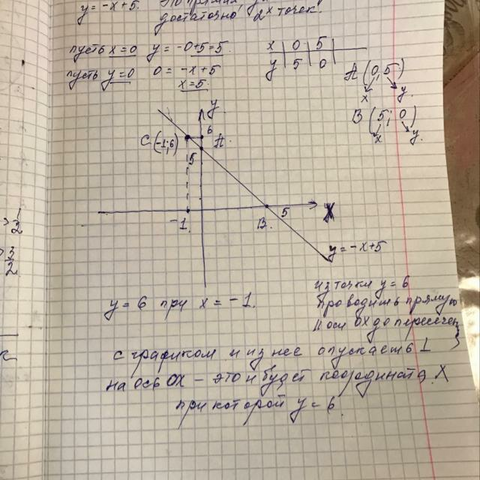 y = -x+5. Это прямая
достаточно 2х точек.
пусть x=0 y = -0+5=5
x 0 5
пусть y=0 0 = -x+5
y 5 0
x=5.
A (0,5)
x y
B (5; 0)
x y.
y
C(-1;6) 6 A
5
-1 B 5 X
y = -x+5
y = 6 при x = -1.
из точки y = 6
проводить прямую
|| оси OX до пересечен
с графиком и из нее опускаеть ⊥
на ось OX – это и будет координата X
при которой y = 6.
1/2
3/2